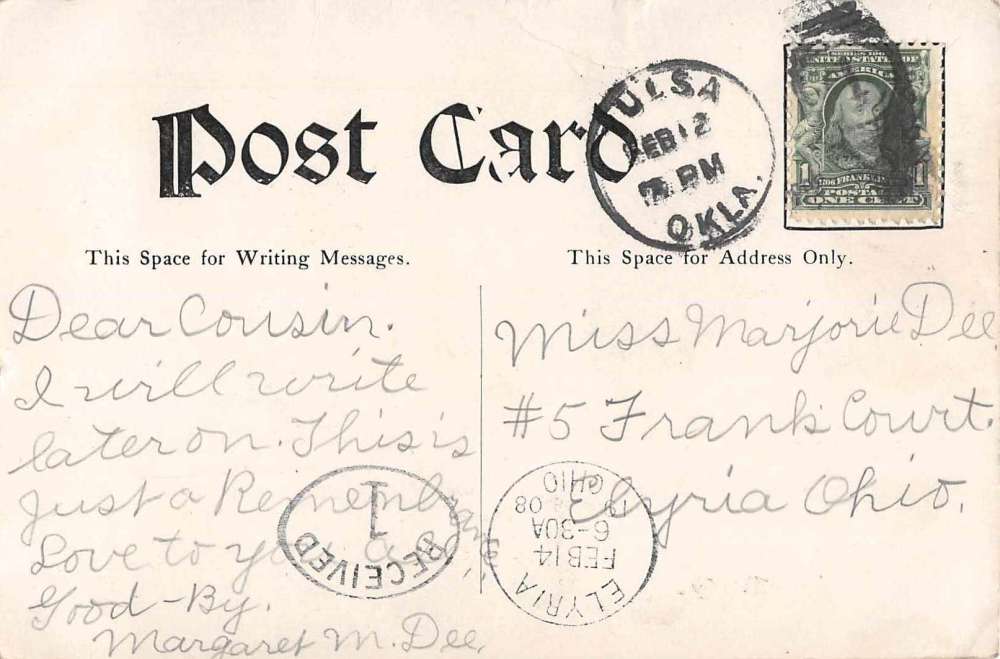 Post Card
TULSA
FEB 12
PM
OKLA.
SERIES 1902
UNITED STATES OF
AMERICA
1 FRANKLIN 1
POSTAGE
ONE CENT
This Space for Writing Messages.
This Space for Address Only.
Dear Cousin.
I will write
later on. This is
Just a Remembrance
Love to you
Good-By.
Margaret M. Dee.
Miss Marjorie Dee
#5 Frank Court.
Elyria Ohio.
RECEIVED
1
ELYRIA
FEB 14
6-30A
1908
OHIO